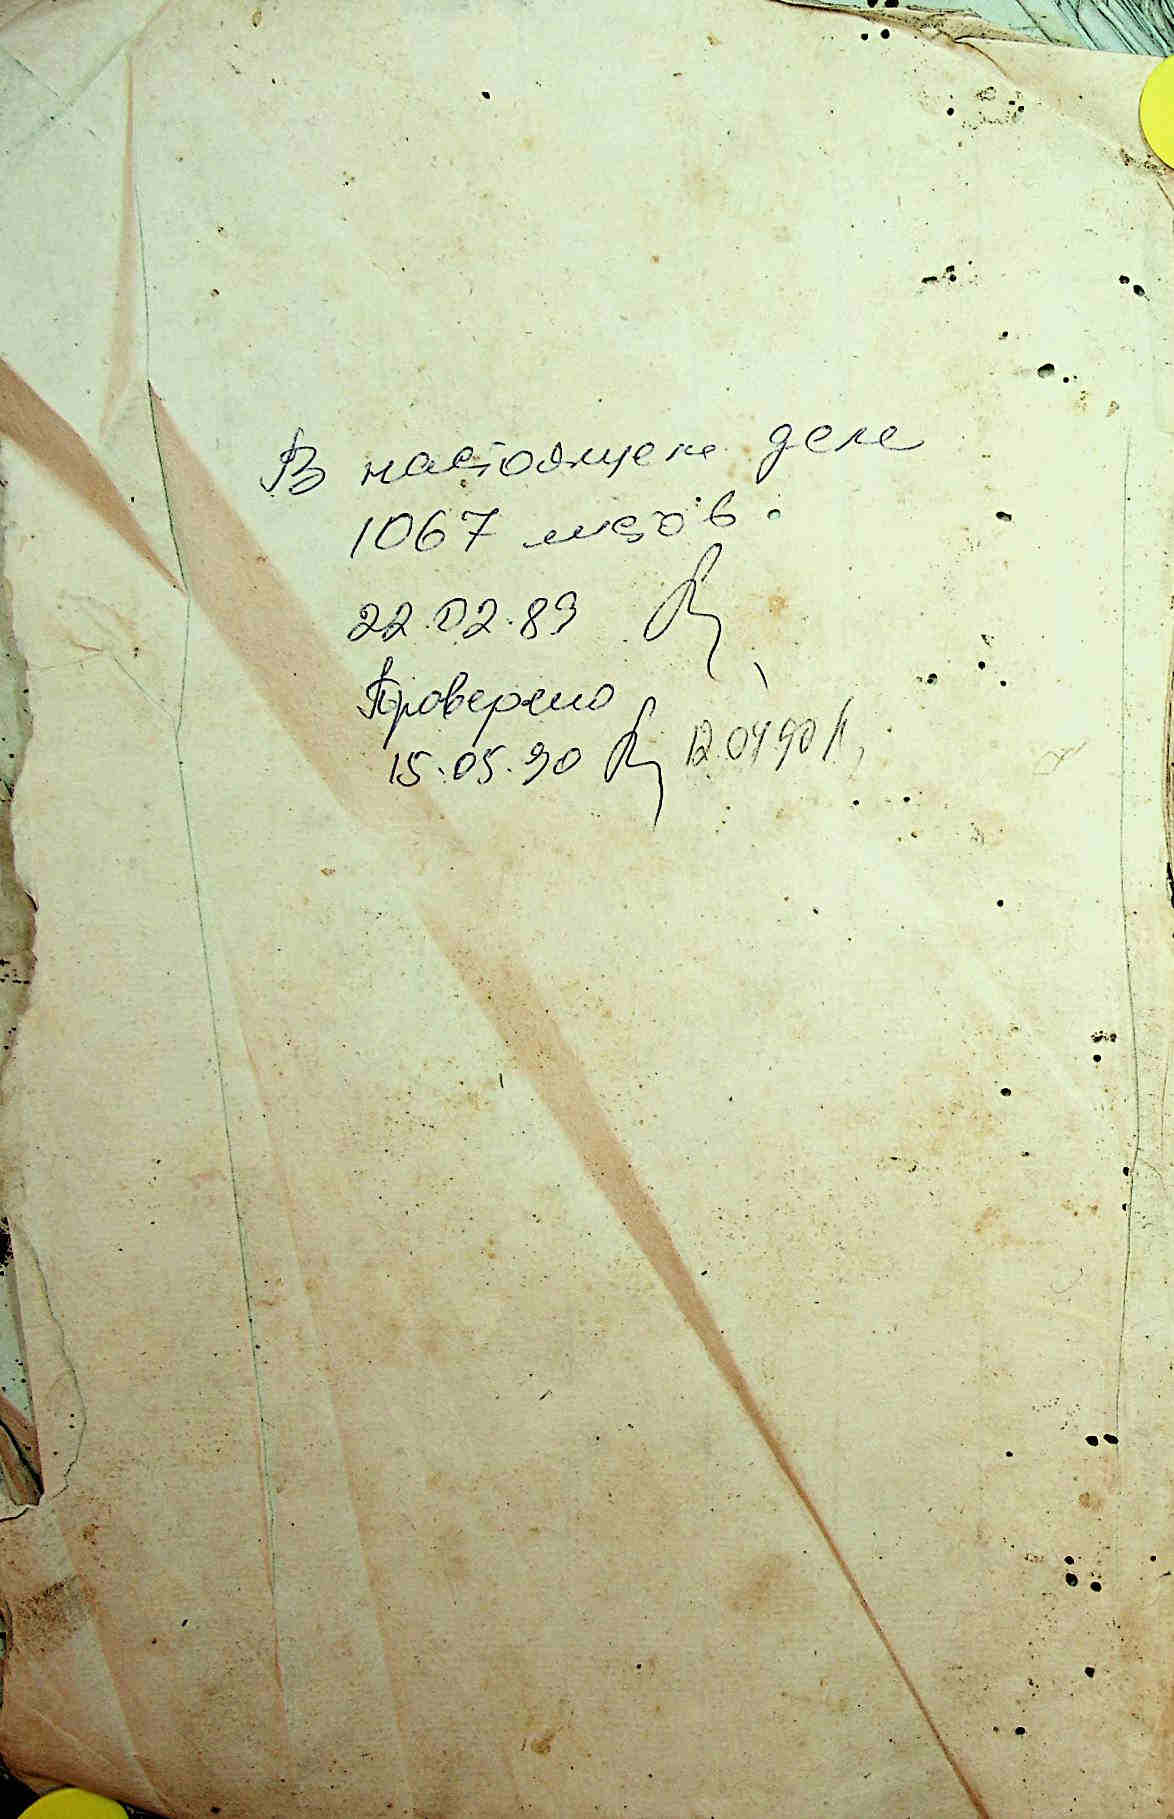 В настоящем деле
1067 листов.
22.02.89
Проверено
15.05.90 12.04.90